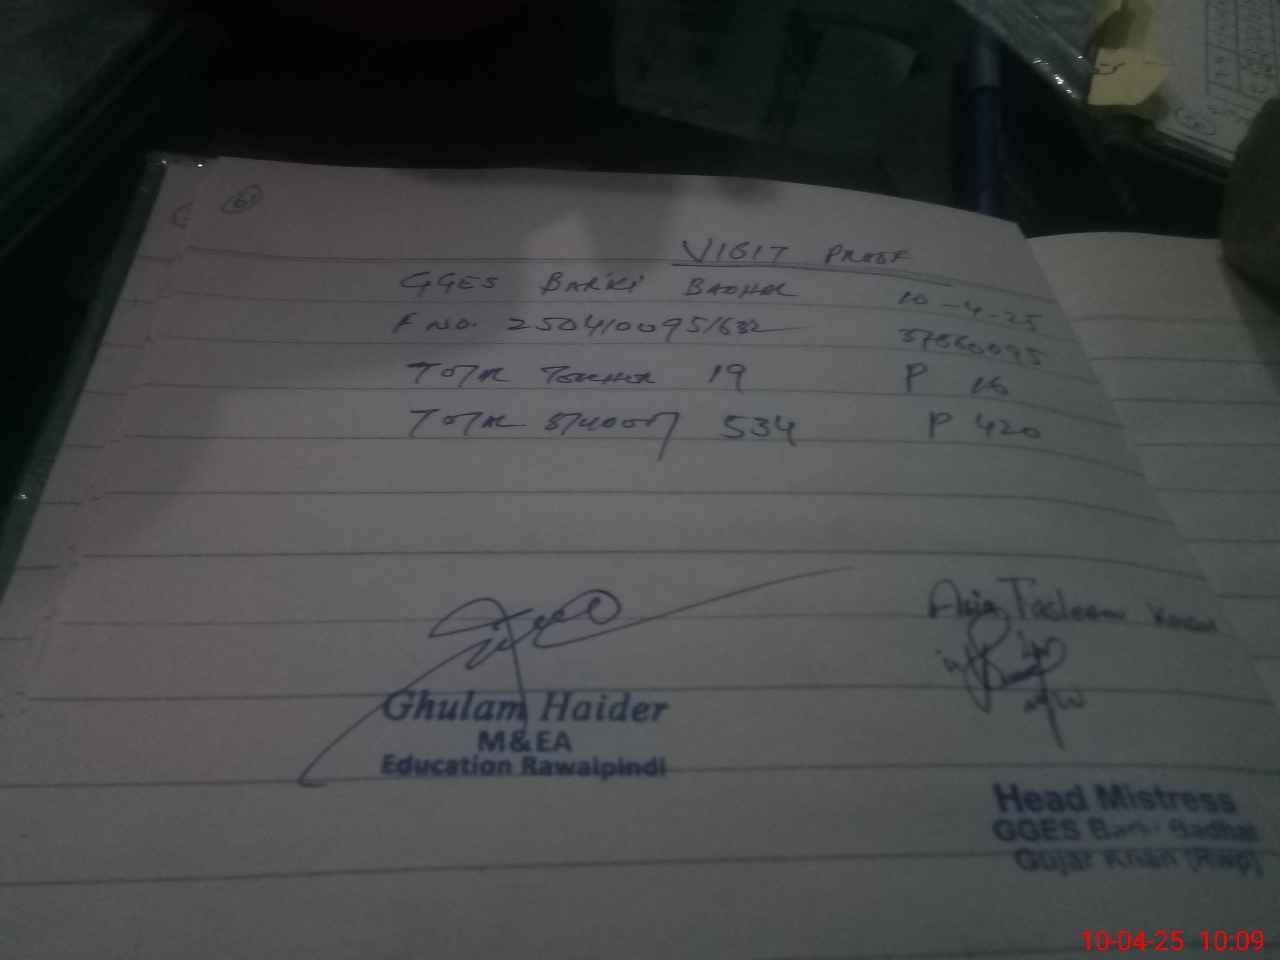 61
VISIT PROOF
GGES BARKI BADHAL 10-4-25
F NO. 2504100951632 37360095
TOTAL TEACHER 19 P 16
TOTAL STUDENT 534 P 420
Asia Tasleem Kausar
Ghulam Haider
M&EA
Education Rawalpindi
Head Mistress
GGES Barki Badhal
Gujar Khan (Rwp)
10-04-25 10:09